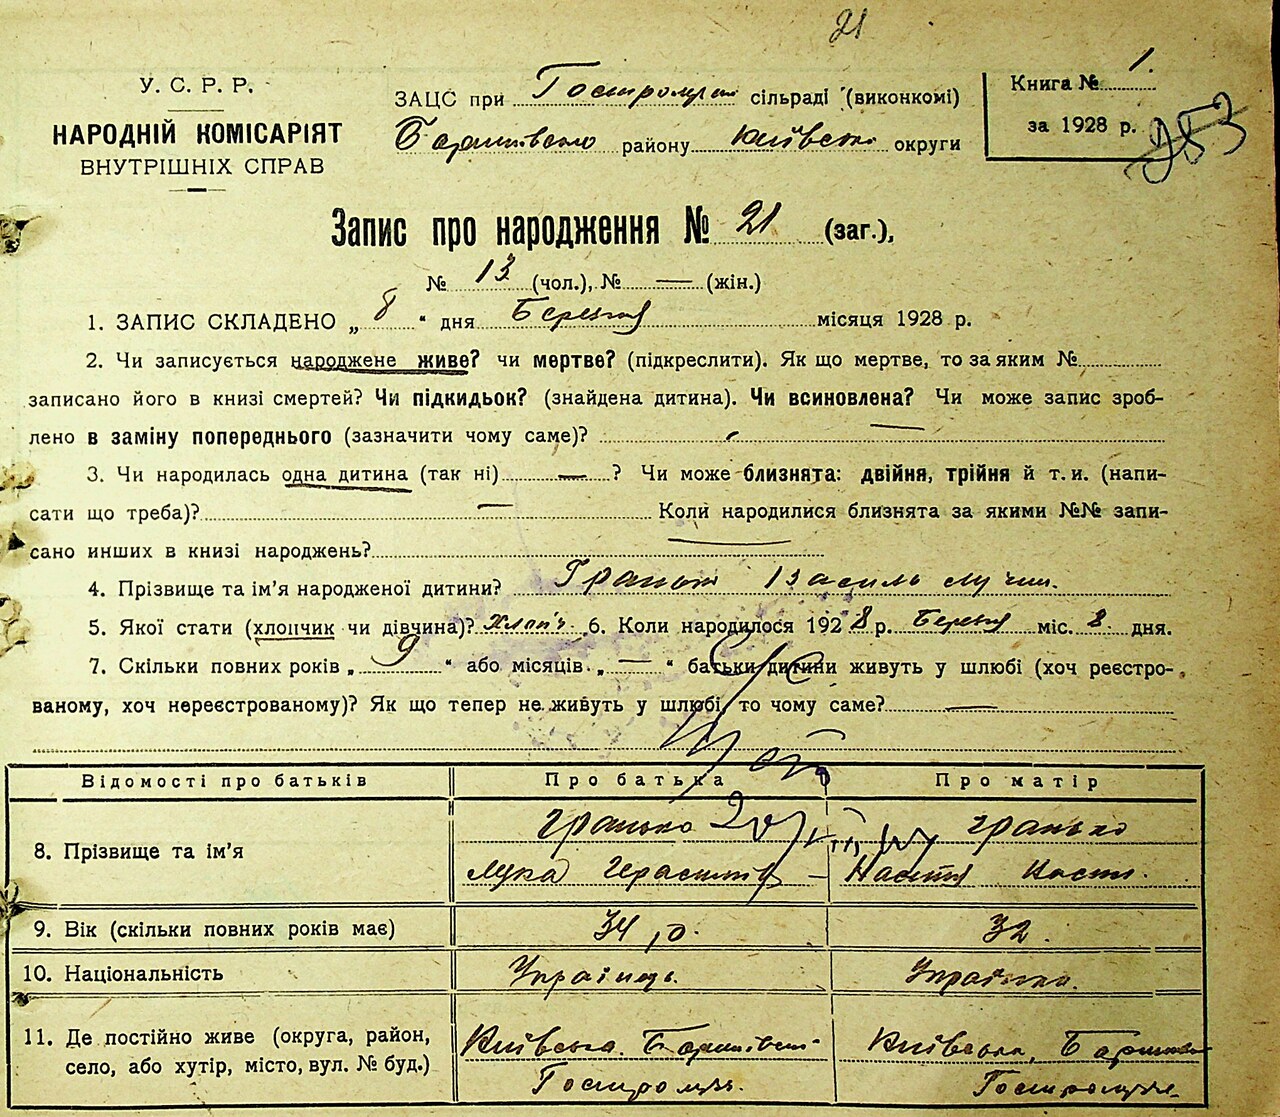 21
У. С. Р. Р.
НАРОДНІЙ КОМІСАРІЯТ
ВНУТРІШНІХ СПРАВ
ЗАЦС при сільраді (виконкомі)
району округи
Книга № 1.
за 1928 р.
253
Запис про народження № 21 (заг.),
№ 13 (чол.), № — (жін.)
1. ЗАПИС СКЛАДЕНО „ 8 “ дня Березня місяця 1928 р.
2. Чи записується народжене живе? чи мертве? (підкреслити). Як що мертве, то за яким №
записано його в книзі смертей? Чи підкидьок? (знайдена дитина). Чи всиновлена? Чи може запис зроб-
лено в заміну попереднього (зазначити чому саме)? —
3. Чи народилась одна дитина (так ні) — ? Чи може близнята: двійня, трійня й т. и. (напи-
сати що треба)? — Коли народилися близнята за якими №№ запи-
сано инших в книзі народжень? —
4. Прізвище та ім'я народженої дитини? Василь
5. Якої стати (хлопчик чи дівчина)? 6. Коли народилося 1928 р. Березня міс. 8. дня.
7. Скільки повних років „ 9 “ або місяців „ — “ батьки дитини живуть у шлюбі (хоч реєстро-
ваному, хоч нереєстрованому)? Як що тепер не живуть у шлюбі, то чому саме? —
Відомості про батьків Про батька Про матір
8. Прізвище та ім'я Гранько Гранько
Лука Настя
9. Вік (скільки повних років має) 34 32.
10. Національність Українець. Українка.
11. Де постійно живе (округа, район, Київська. Київська,
село, або хутір, місто, вул. № буд.)